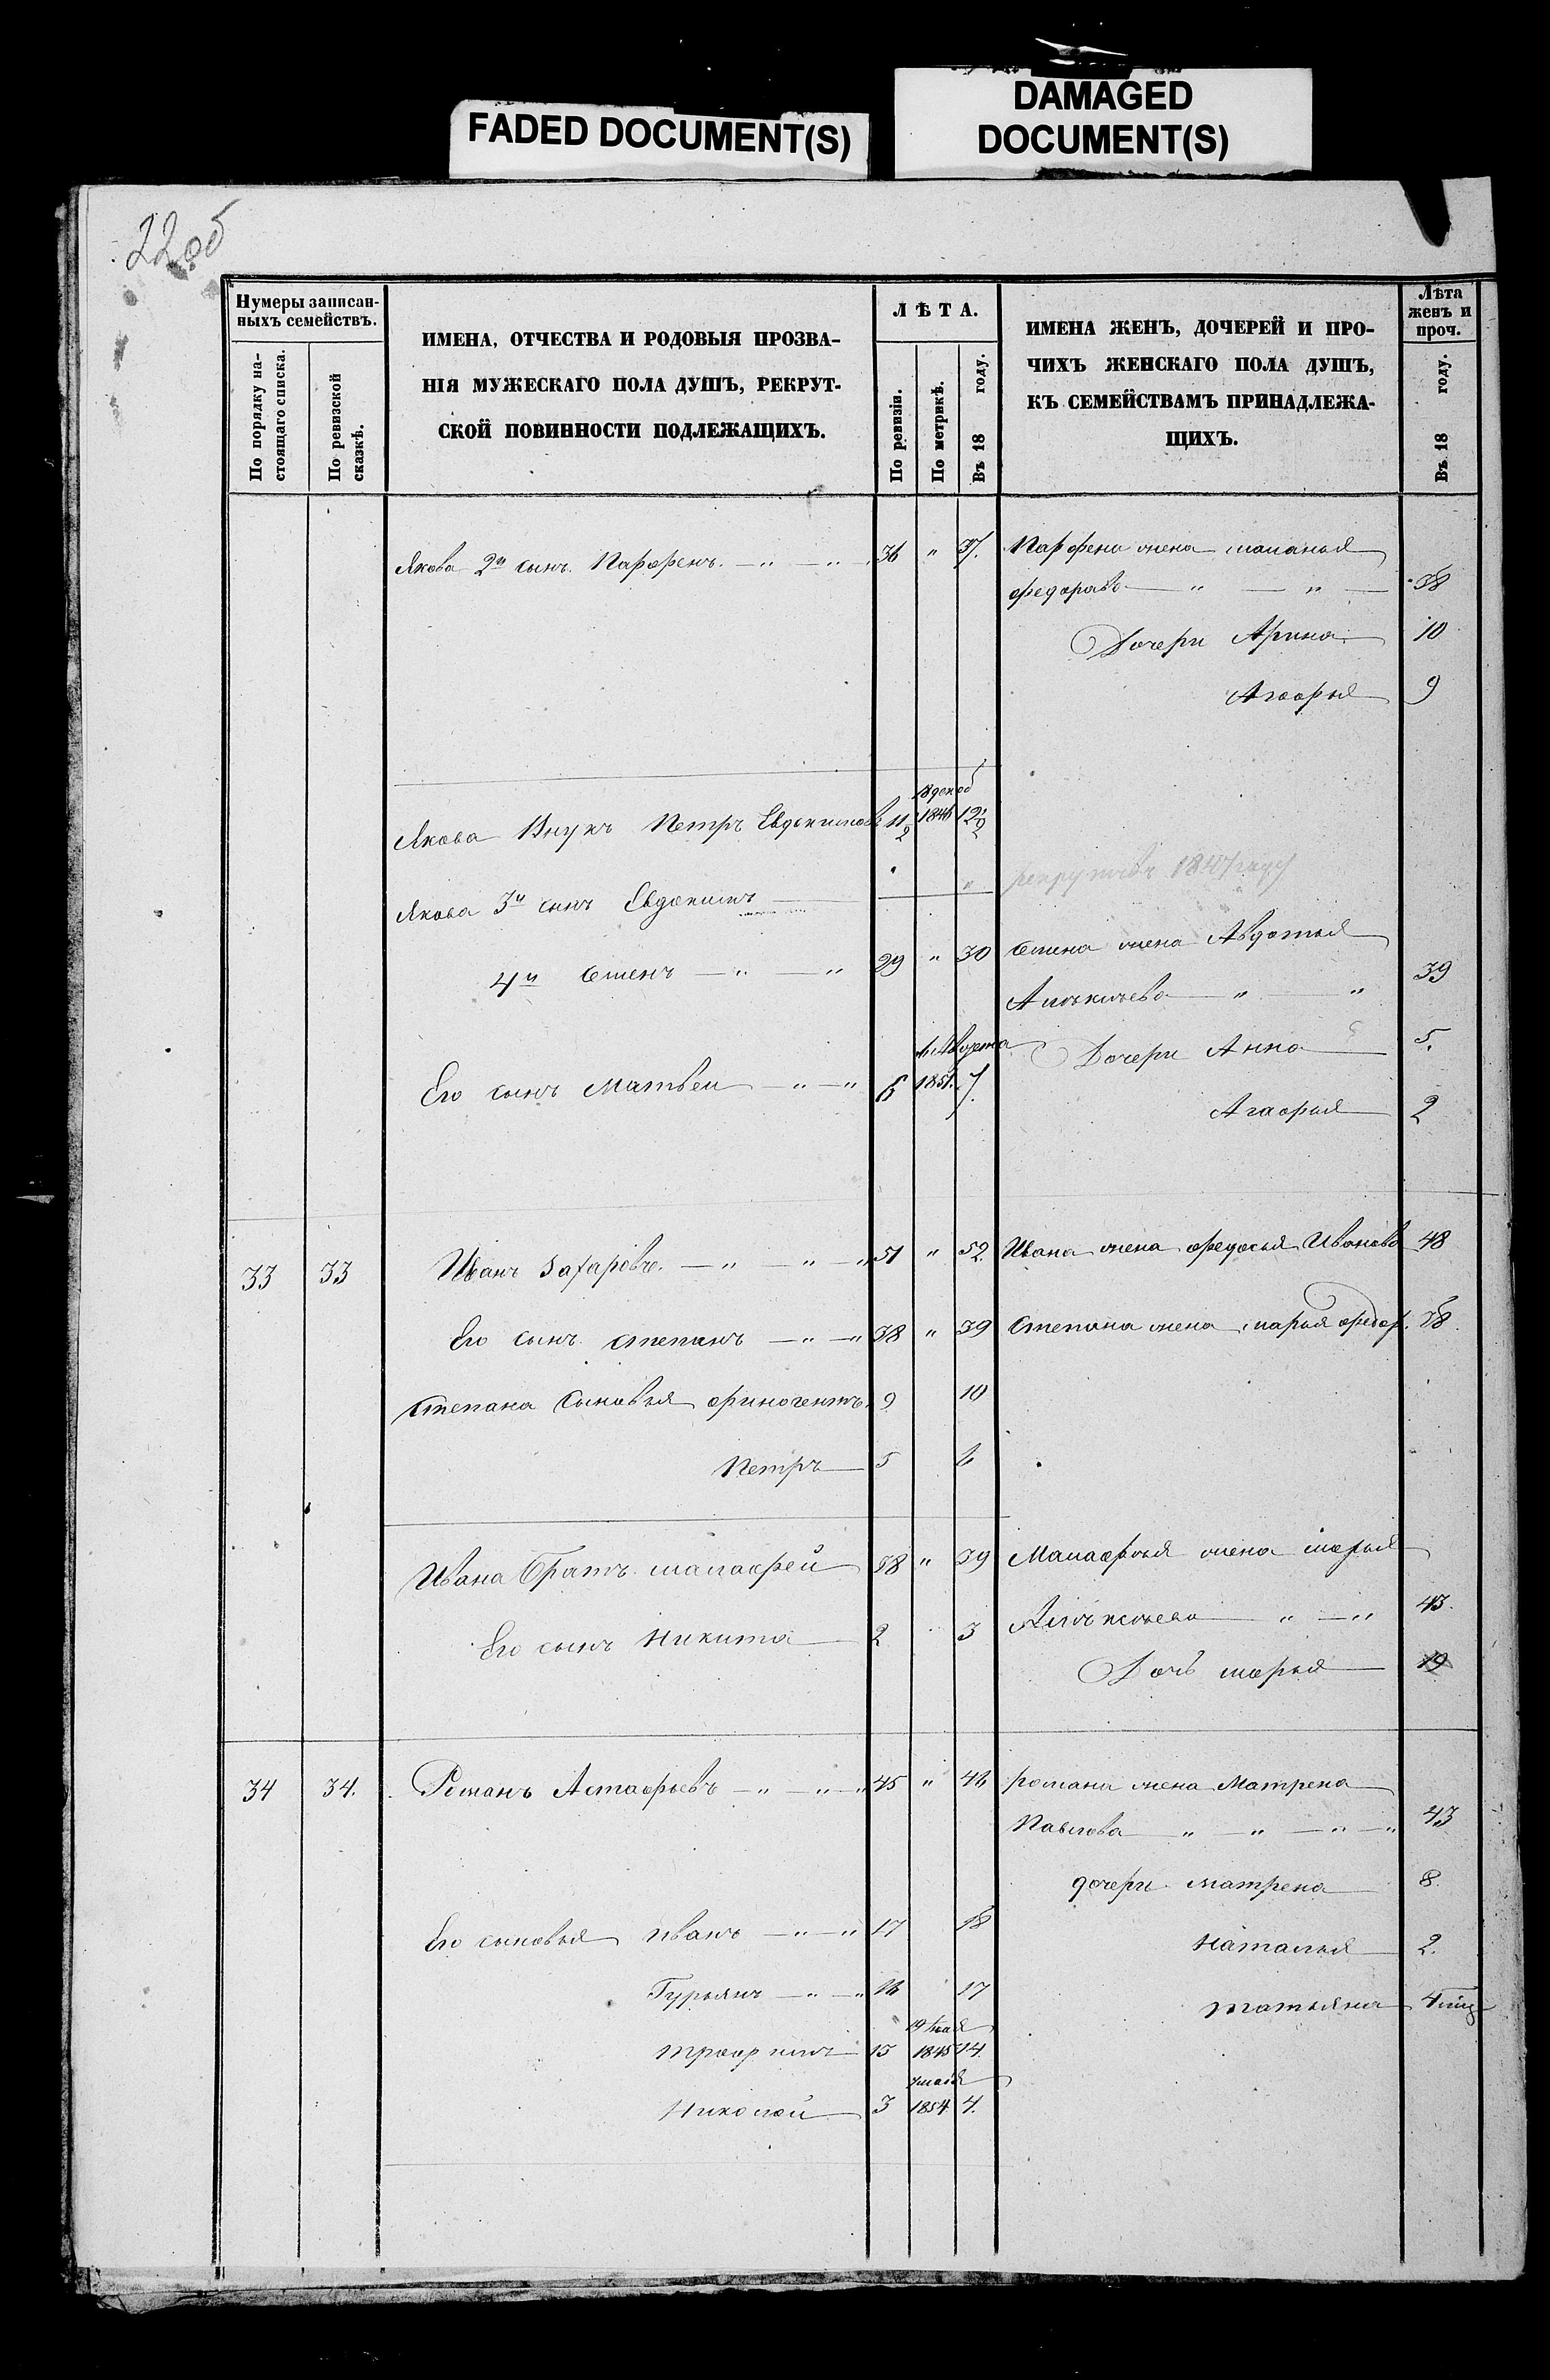 FADED DOCUMENT(S)
DAMAGED
DOCUMENT(S)
22об
Нумеры записан-
ныхъ семействъ.
По порядку на-
стоящаго списка.
По ревизской
сказкѣ.
ИМЕНА, ОТЧЕСТВА И РОДОВЫЯ ПРОЗВА-
НІЯ МУЖЕСКАГО ПОЛА ДУШЪ, РЕКРУТ-
СКОЙ ПОВИННОСТИ ПОДЛЕЖАЩИХЪ.
ЛѢТА.
По ревизіи.
По метрикѣ.
Въ 18 году.
ИМЕНА ЖЕНЪ, ДОЧЕРЕЙ И ПРО-
ЧИХЪ ЖЕНСКАГО ПОЛА ДУШЪ,
КЪ СЕМЕЙСТВАМЪ ПРИНАДЛЕЖА-
ЩИХЪ.
Лѣта
женъ и
проч.
Въ 18 году.
Якова 2й сынъ Парфенъ — " — " 36 " 37. Парфена жена маланья
федорова — " — " — 38
Дочери Арина 10
Агафья 9
Якова Внукъ Петръ Евдокимовъ 11 1/2 1846 12 1/2
Якова 3й сынъ Евдокимъ — " рекрутъ въ 1847 году
4й Семенъ — " — " 29 " 30 Семена жена Авдотья
" " 39
Его сынъ Матвеи — " — " 6 6 Августа 1851. 7. Дочери Анна 5.
Агафья 2
33 33 Иванъ Захаровъ. — " — " — " 51 " 52. Ивана жена федосья Иванова 48
Его сынъ степанъ — " — " 38 " 39 Степана жена марья федор. 38
Степана Сыновья финогентъ. 9 10
Петръ 5 6
Ивана Братъ малафей 38 " 39 Малафья жена марья
Алексеева — " — " 43.
Его сынъ Никита 2 3
Дочь марья 19
34 34. Романъ Астафьевъ — " — " — " 45 " 46 романа жена Матрена
Павлова — " — " — " — " 43
дочери матрена 8
Его сыновья иванъ — " — " 17 18
Наталья 2.
Гурьянъ — " — " 16 17
татьяна 4 мѣц
трафимъ 13 1845 14
Николай 3 мая 1854 4.